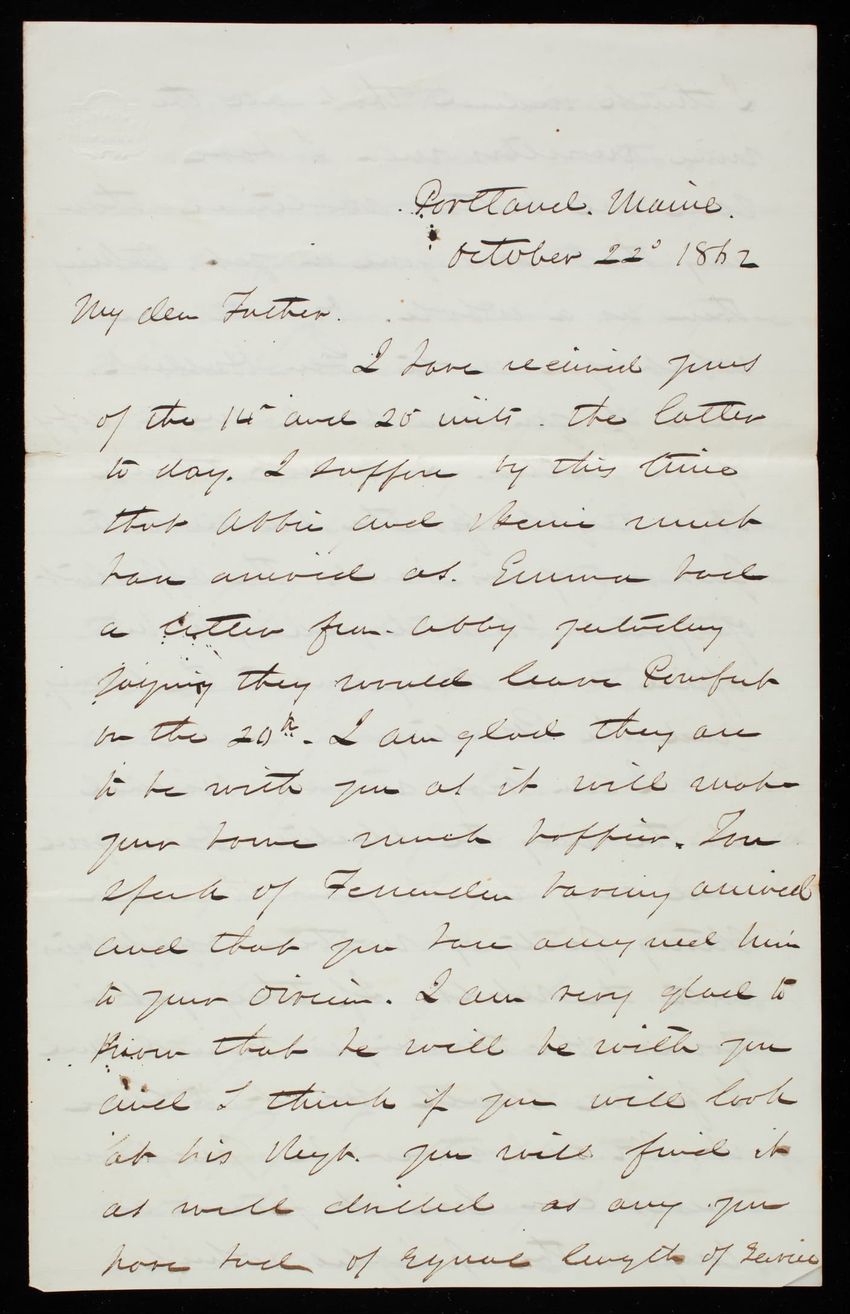 Portland. Maine.
October 22d 1862
My dear Father.
I have received yours
of the 15th and 20 insts. the latter
to day. I suppose by this time
that Abbie and Hanie must
have arrived as. Emma had
a letter from Abby yesterday
saying they would leave Pomfret
on the 20th. I am glad they are
to be with you as it will make
your home much happier. You
speak of Fessenden having arrived
and that you have assigned him
to your Division. I am very glad to
know that he will be with you
and I think if you will look
at his Regt. you will find it
as well drilled as any you
have had of equal length of service